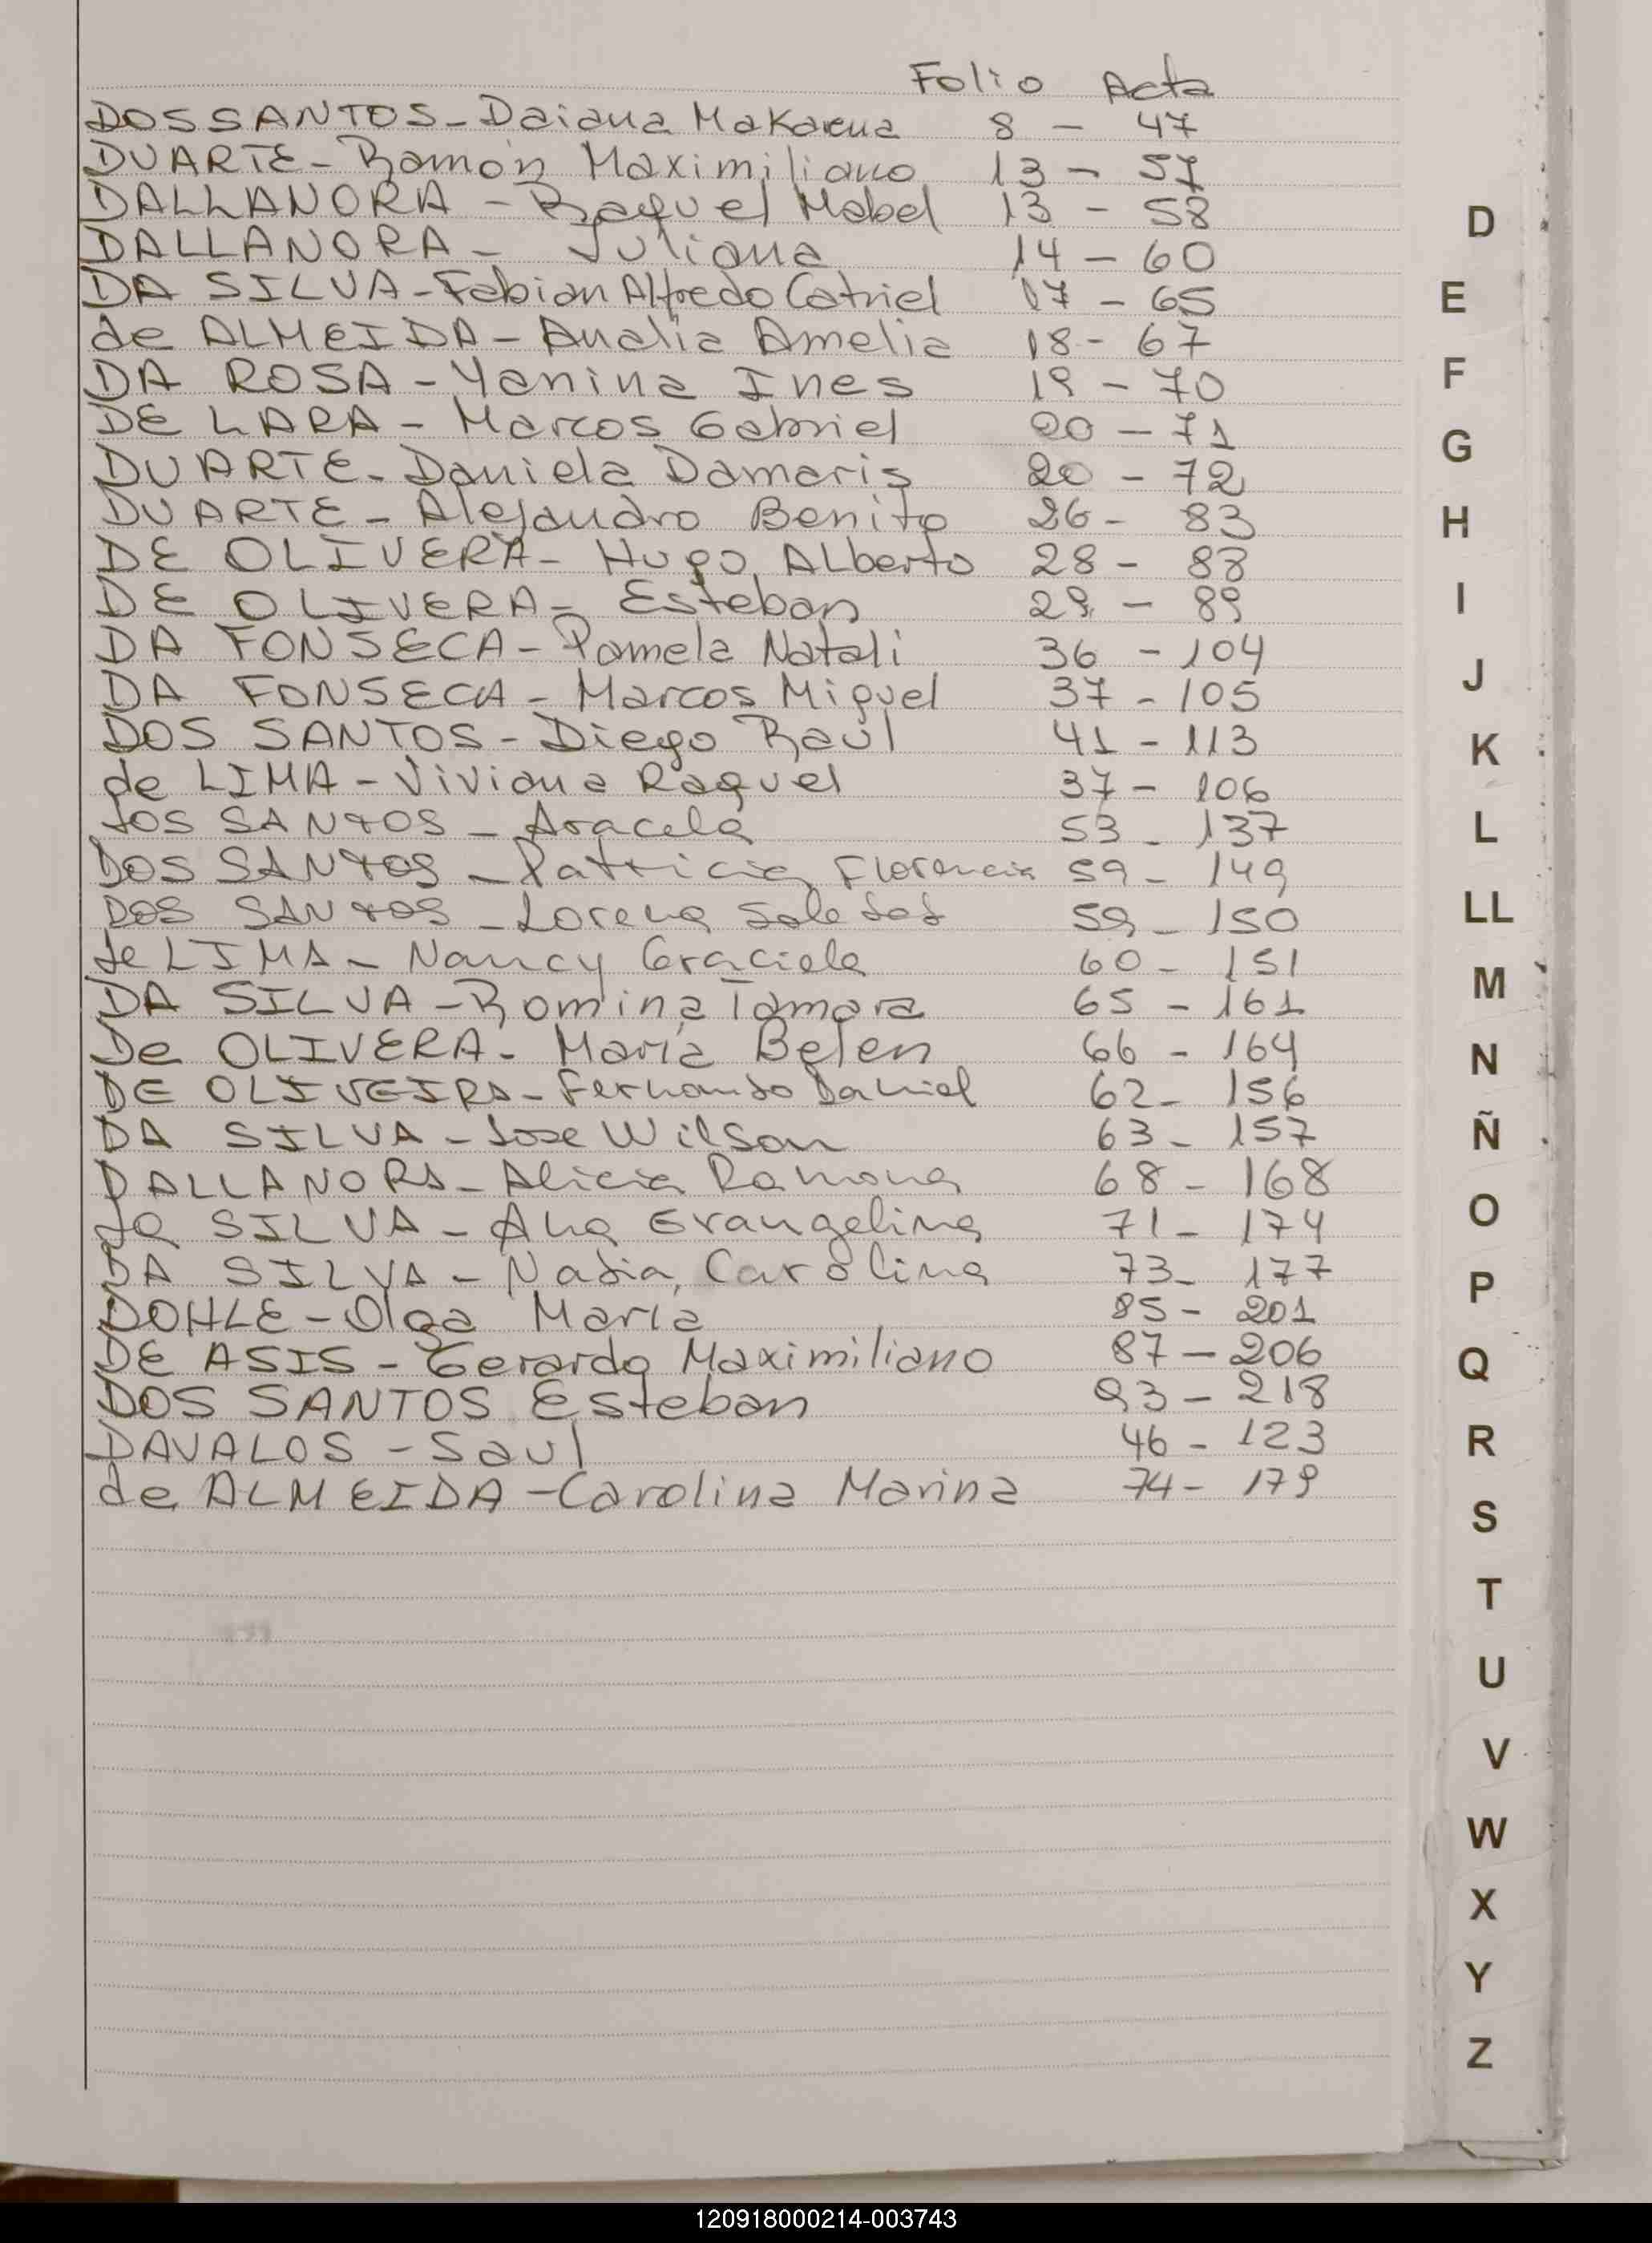 Folio Acta
DOS SANTOS - Daiana Makarena 8 - 47
DUARTE - Ramón Maximiliano 13 - 57
DALLANORA - Raquel Mabel 13 - 58
DALLANORA - Juliana 14 - 60
DA SILVA - Fabian Alfredo Catriel 17 - 65
de ALMEIDA - Analia Amelia 18 - 67
DA ROSA - Yanina Ines 19 - 70
DE LARA - Marcos Gabriel 20 - 71
DUARTE - Daniela Damaris 20 - 72
DUARTE - Alejandro Benito 26 - 83
DE OLIVERA - Hugo Alberto 28 - 88
DE OLIVERA - Esteban 29 - 89
DA FONSECA - Pamela Natali 36 - 104
DA FONSECA - Marcos Miguel 37 - 105
DOS SANTOS - Diego Raúl 41 - 113
de LIMA - Viviana Raquel 37 - 106
dos SANTOS - Aracela 53 - 137
DOS SANTOS - Patricia Florencia 59 - 149
DOS SANTOS - Lorena Soledad 59 - 150
de LIMA - Nancy Graciela 60 - 151
DA SILVA - Romina Tamara 65 - 161
De OLIVERA - María Belen 66 - 164
DE OLIVEIRA - Fernando Daniel 62 - 156
DA SILVA - Jose Wilson 63 - 157
DALLANORA - Alicia Ramona 68 - 168
da SILVA - Ana Evangelina 71 - 174
DA SILVA - Nadia Carolina 73 - 177
DOHLE - Olga María 85 - 201
DE ASIS - Gerardo Maximiliano 87 - 206
DOS SANTOS Esteban 93 - 218
DAVALOS - Saul 46 - 123
de ALMEIDA - Carolina Marina 74 - 179
D
E
F
G
H
I
J
K
L
LL
M
N
Ñ
O
P
Q
R
S
T
U
V
W
X
Y
Z
120918000214-003743